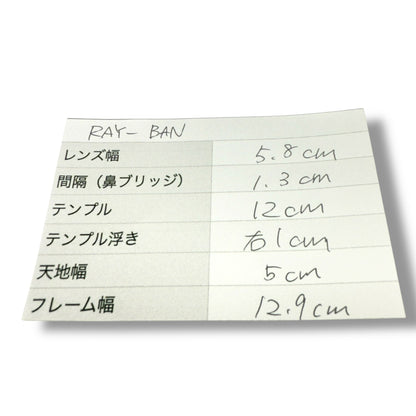 RAY-BAN
レンズ幅 5.8cm
間隔（鼻ブリッジ） 1.3cm
テンプル 12cm
テンプル浮き 右1cm
天地幅 5cm
フレーム幅 12.9cm